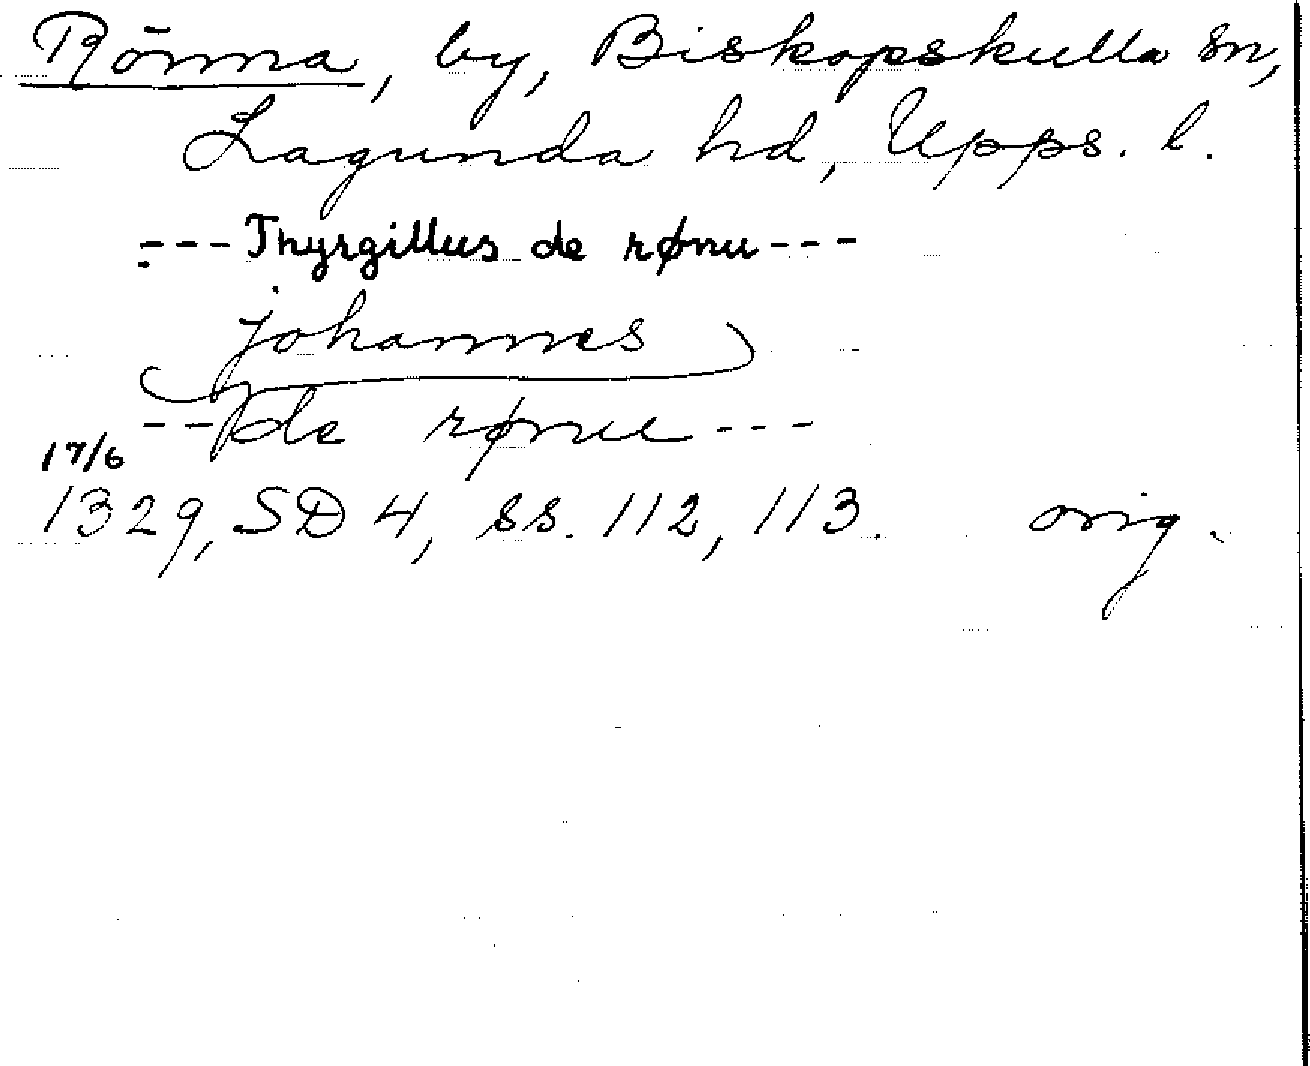 Rönna, by, Biskopskulla sn,
Lagunda hd, Upps. l.
--- Thyrgillus de rønu ---
johannes
-- de rønu ---
17/6
1329, SD 4, ss. 112, 113. orig.